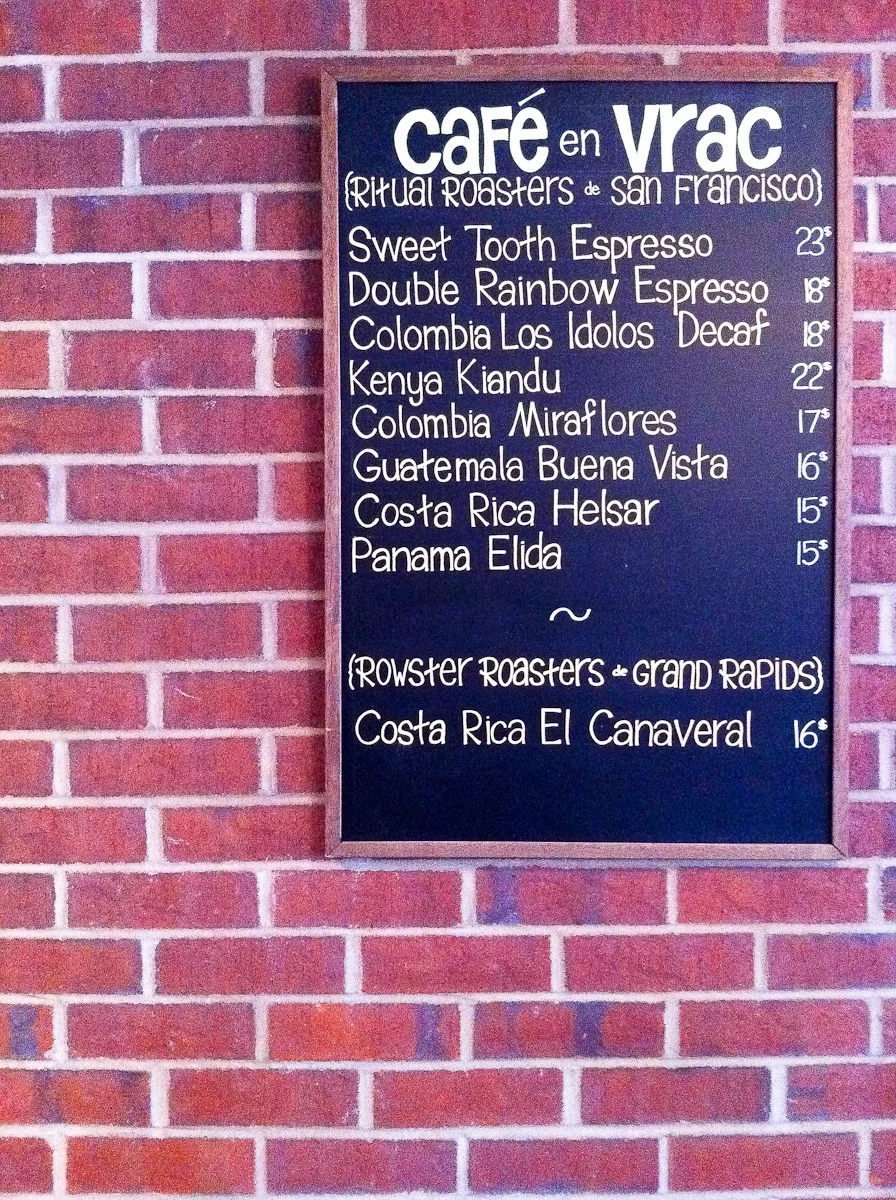 café en vrac
{Ritual Roasters de San Francisco}
Sweet Tooth Espresso 23$
Double Rainbow Espresso 18$
Colombia Los Idolos Decaf 18$
Kenya Kiandu 22$
Colombia Miraflores 17$
Guatemala Buena Vista 16$
Costa Rica Helsar 15$
Panama Elida 15$
~
{Rowster Roasters de Grand Rapids}
Costa Rica El Canaveral 16$